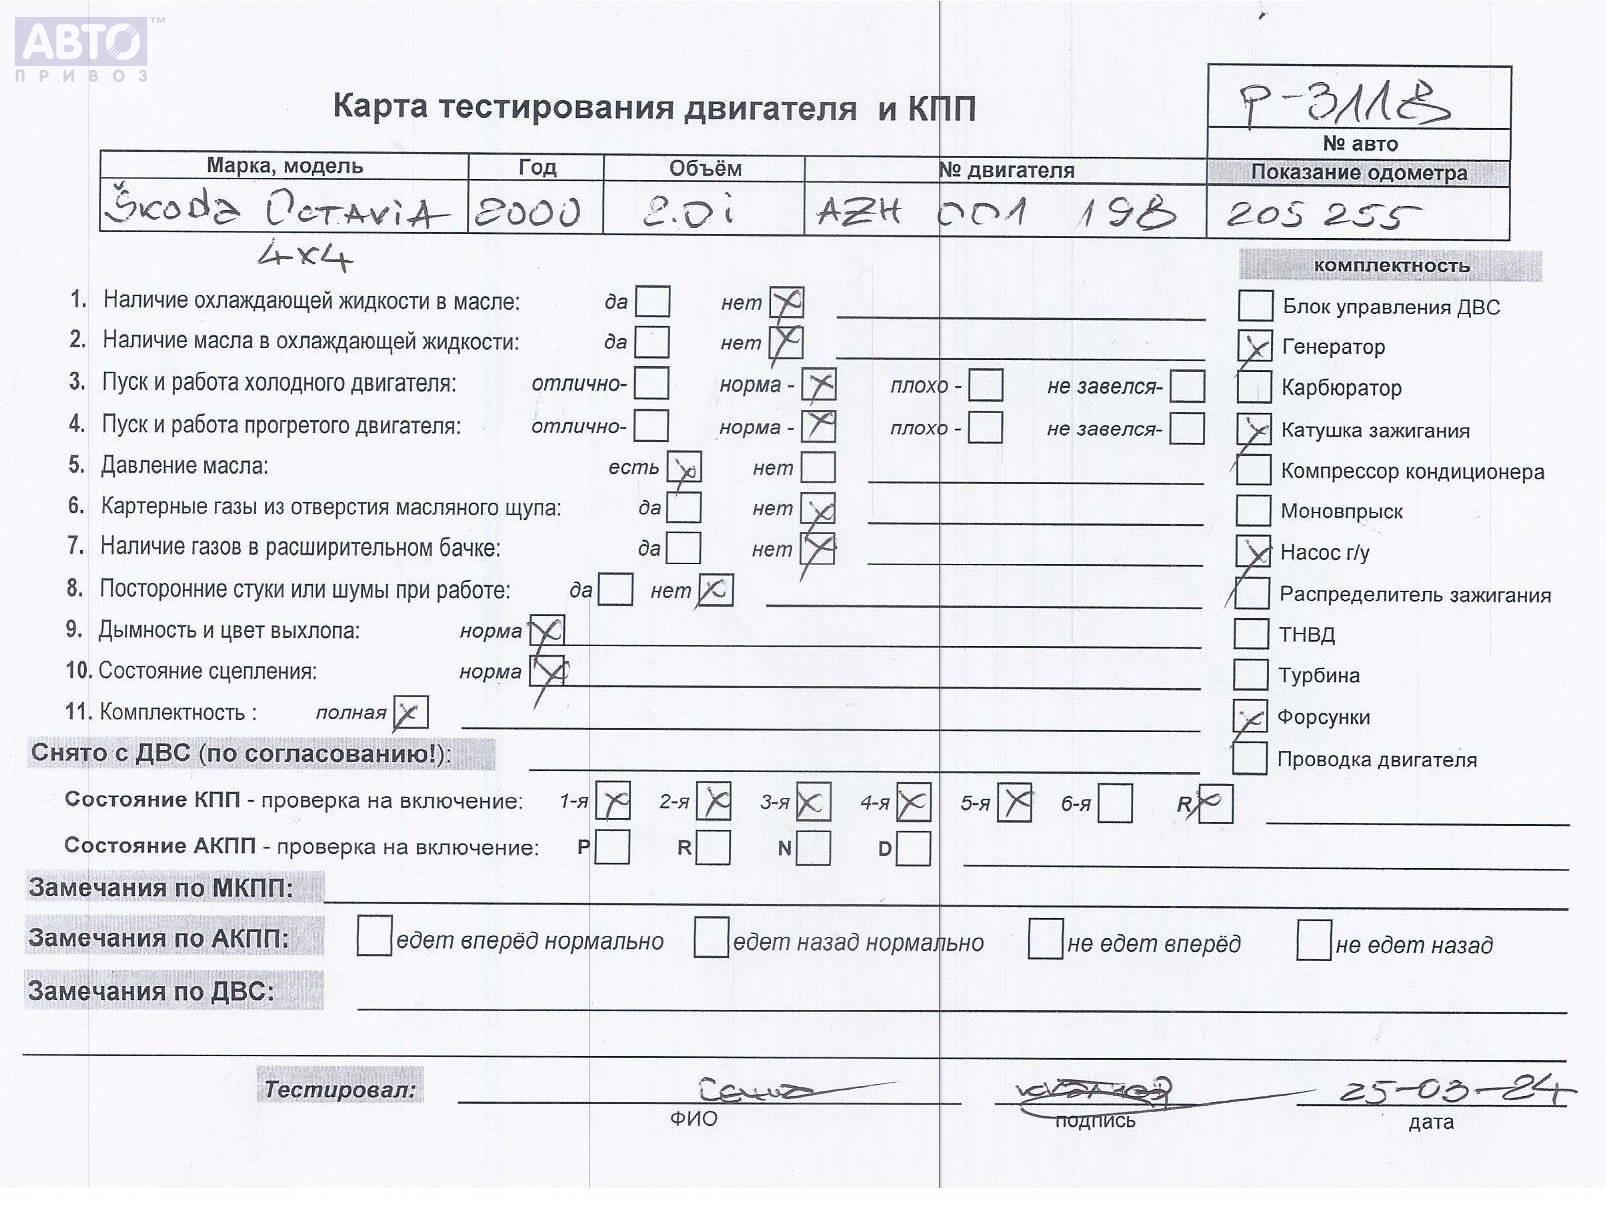 АВТО™
ПРИВОЗ
Карта тестирования двигателя и КПП
P-3118
№ авто
Марка, модель Год Объём № двигателя Показание одометра
Škoda Octavia 2000 2.0i AZH 001 198 205 255
4x4
комплектность
1. Наличие охлаждающей жидкости в масле: да нет
Блок управления ДВС
2. Наличие масла в охлаждающей жидкости: да нет
Генератор
3. Пуск и работа холодного двигателя: отлично- норма - плохо - не завелся-
Карбюратор
4. Пуск и работа прогретого двигателя: отлично- норма - плохо - не завелся-
Катушка зажигания
5. Давление масла: есть нет
Компрессор кондиционера
6. Картерные газы из отверстия масляного щупа: да нет
Моновпрыск
7. Наличие газов в расширительном бачке: да нет
Насос г/у
8. Посторонние стуки или шумы при работе: да нет
Распределитель зажигания
9. Дымность и цвет выхлопа: норма
ТНВД
10. Состояние сцепления: норма
Турбина
11. Комплектность : полная
Форсунки
Снято с ДВС (по согласованию!):
Проводка двигателя
Состояние КПП - проверка на включение: 1-я 2-я 3-я 4-я 5-я 6-я R
Состояние АКПП - проверка на включение: P R N D
Замечания по МКПП:
Замечания по АКПП: едет вперёд нормально едет назад нормально не едет вперёд не едет назад
Замечания по ДВС:
Тестировал: 25-03-24
ФИО подпись дата